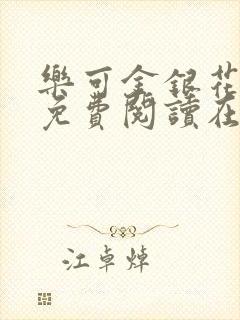 樂可金銀花
免費閱讀在
江卓焯